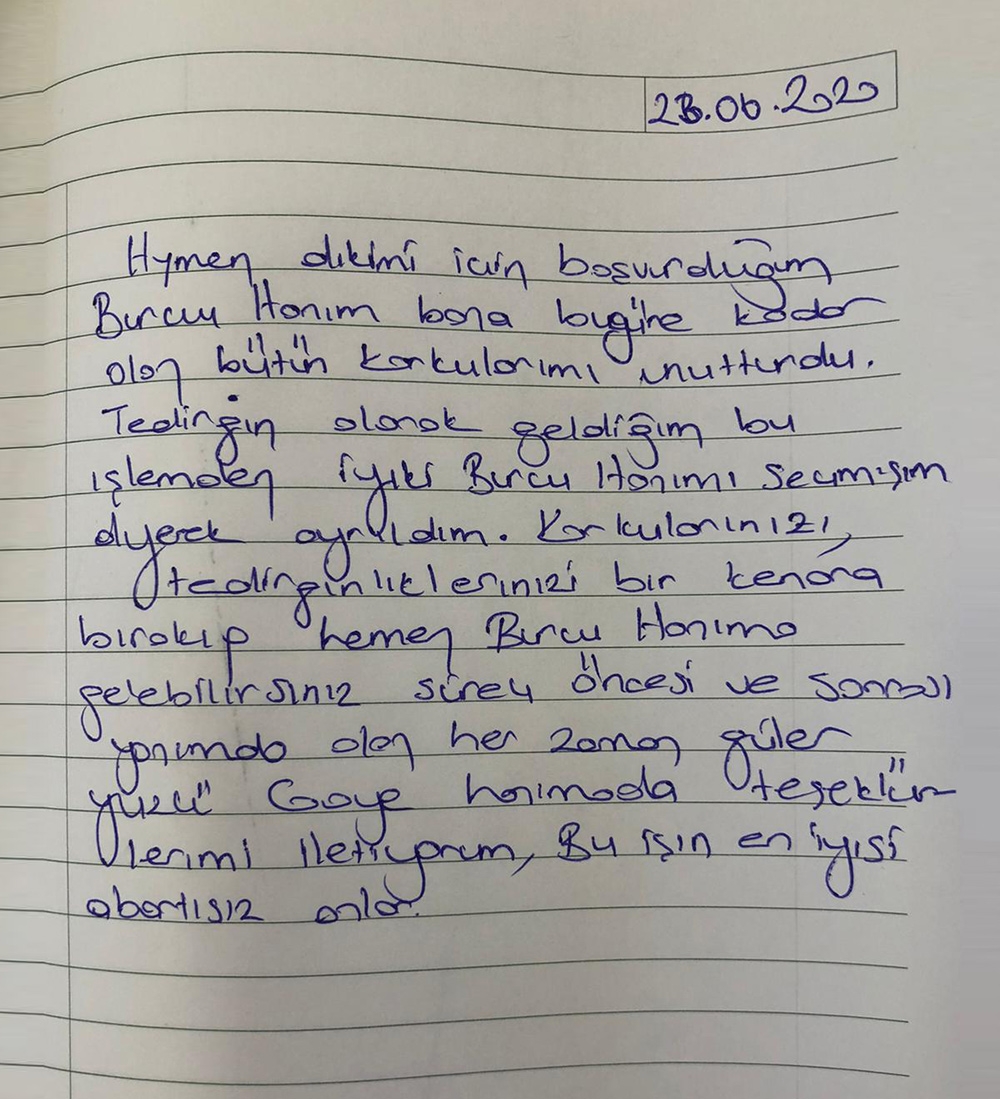 23.06.2020
Hymen dikimi için başvurduğum
Burcu Hanım bana bugüne kadar
olan bütün korkularımı unutturdu.
Tedirgin olarak geldiğim bu
işlemden iyiki Burcu Hanımı seçmişim
diyerek ayrıldım. Korkularınızı,
tedirginliklerinizi bir kenara
bırakıp hemen Burcu Hanıma
gelebilirsiniz süreç öncesi ve sonrası
yanımda olan her zaman güler
yüzlü Gaye hanımada teşekkür
lerimi iletiyorum, Bu işin en iyisi
abartısız onlar.